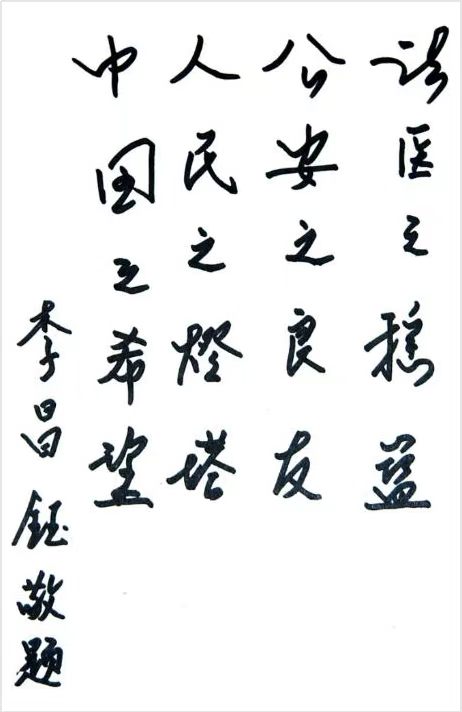 法医之摇蓝
公安之良友
人民之燈塔
中国之希望
李昌鈺敬题